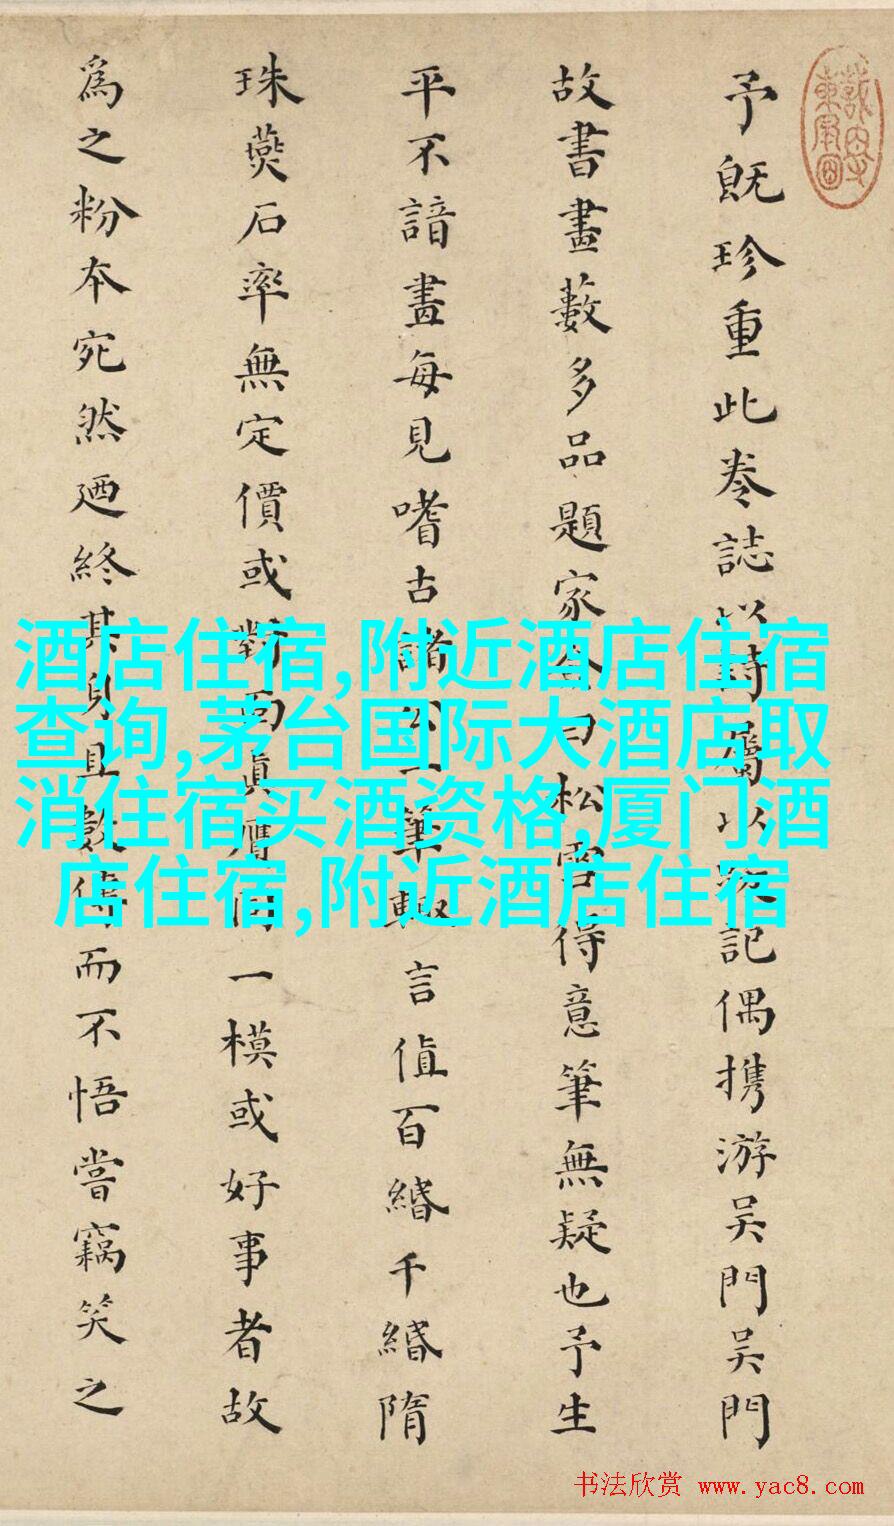 予既珍重此卷誌以詩屬以跋記偶携游吴門吴門
故書畫藪多品題家僉曰松雪得意筆無疑也予生
平不諳畫每見嗜古諸公一筆輒言值百緡千緡隋
珠燕石率無定價或對面真贋同一模或好事者故
爲之粉本宛然迺終其身且數傳而不悟嘗竊笑之
酒店住宿,附近酒店住宿
查询,茅台国际大酒店取
消住宿买酒资格,厦门酒
店住宿,附近酒店住宿
书法欣赏 www.yac8.com